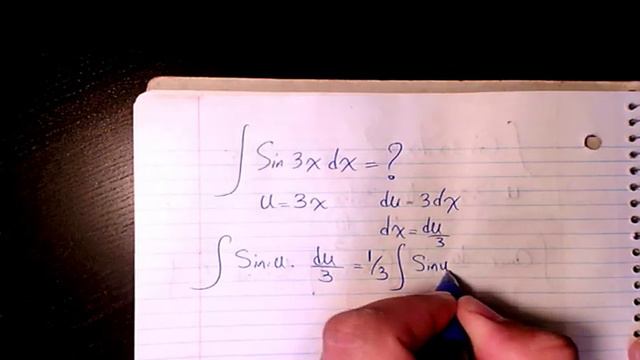 ∫ Sin 3x dx = ?
u = 3x du = 3dx
dx = du/3
∫ Sin u · du/3 = 1/3 ∫ Sin u